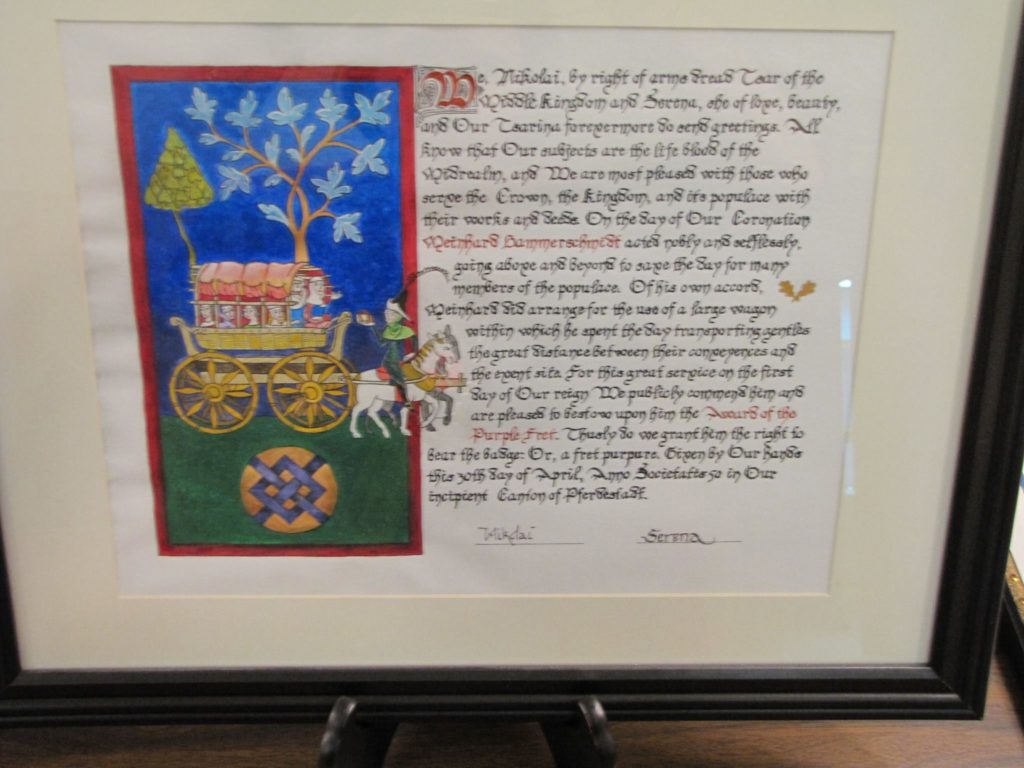 We, Nikolai, by right of arms dread Tsar of the
Middle Kingdom and Serena, she of love, beauty,
and Our Tsarina forevermore do send greetings. All
know that Our subjects are the life blood of the
Midrealm, and We are most pleased with those who
serve the Crown, the Kingdom, and its populace with
their works and deeds. On the day of Our Coronation
Meinhard Hammerschmidt acted nobly and selflessly,
going above and beyond to save the day for many
members of the populace. Of his own accord,
Meinhard did arrange for the use of a large wagon
within which he spent the day transporting gentles
the great distance between their conveyences and
the event site. For this great service on the first
day of Our reign We publicly commend him and
are pleased to bestow upon him the Award of the
Purple Fret. Thusly do we grant him the right to
bear the badge: Or, a fret purpure. Given by Our hands
this 30th day of April, Anno Societatis 50 in Our
incipient Canton of Pferdestadt.
Nikolai Serena